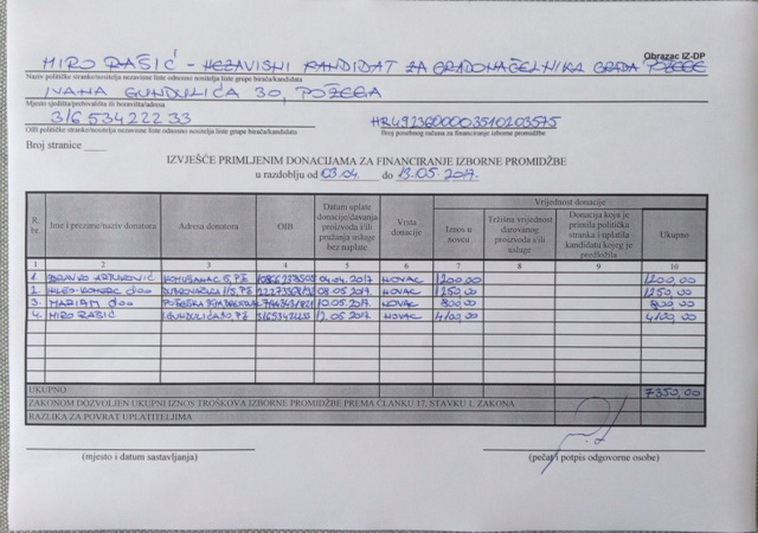 Obrazac IZ-DP
MIRO RAŠIĆ - NEZAVISNI KANDIDAT ZA GRADONAČELNIKA GRADA POŽEGE
Naziv političke stranke/nositelja nezavisne liste odnosno nositelja liste grupe birača/kandidata
IVANA GUNDULIĆA 30, POŽEGA
Mjesto sjedišta/prebivališta ili boravišta/adresa
31653422233 HR4923600003510203575
OIB političke stranke/nositelja nezavisne liste odnosno nositelja liste grupe birača/kandidata Broj posebnog računa za financiranje izborne promidžbe
Broj stranice
IZVJEŠĆE PRIMLJENIM DONACIJAMA ZA FINANCIRANJE IZBORNE PROMIDŽBE
u razdoblju od 03.04. do 13.05.2017.
R. br. Ime i prezime/naziv donatora Adresa donatora OIB Datum uplate donacije/davanja proizvoda i/ili pružanja usluge bez naplate Vrsta donacije Vrijednost donacije
Iznos u novcu Tržišna vrijednost darovanog proizvoda i/ili usluge Donacija koju je primila politička stranka i uplatila kandidatu kojeg je predložila Ukupno
1 2 3 4 5 6 7 8 9 10
1. 5, PŽ 04.04.2017 NOVAC 1200,00 1200,00
2. 08.05.2017. NOVAC 1250,00 1250,00
3. MARIAM doo 10.05.2017. NOVAC 800,00 800,00
4. MIRO RAŠIĆ I.GUNDULIĆA 30, PŽ 31653422233 12.05.2017 NOVAC 4100,00 4100,00
UKUPNO 7350,00
ZAKONOM DOZVOLJEN UKUPNI IZNOS TROŠKOVA IZBORNE PROMIDŽBE PREMA ČLANKU 17. STAVKU 1. ZAKONA
RAZLIKA ZA POVRAT UPLATITELJIMA
(mjesto i datum sastavljanja) (pečat i potpis odgovorne osobe)